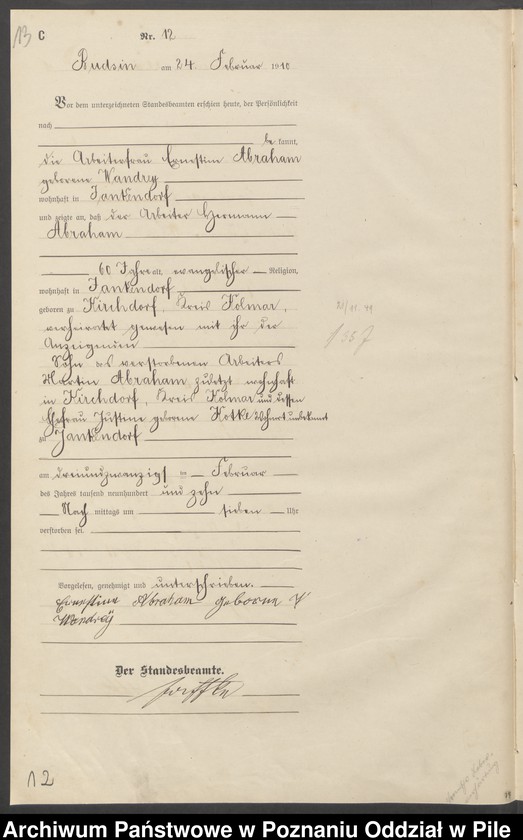 13 C Nr. 12
Budsin am 24 Februar 1910
Vor dem unterzeichneten Standesbeamten erschien heute, der Persönlichkeit
nach
be kannt,
die Arbeiterfrau Ernestine Abraham
geborene Wandrey
wohnhaft in Jankendorf
und zeigte an, daß der Arbeiter Hermann
Abraham
60 Jahre alt, evangelischer Religion,
wohnhaft in Jankendorf
geboren zu Kirchdorf, Kreis Kolmar,
verheiratet gewesen mit ihr der
Anzeigenden
Sohn des verstorbenen Arbeiters
Martin Abraham zuletzt wohnhaft
in Kirchdorf, Kreis Kolmar und dessen
Ehefrau Justine geborene Hotke Wohnort unbekannt
zu Jankendorf
am dreiundzwanzigsten Februar
des Jahres tausend neunhundert und zehn
Nach mittags um sieben Uhr
verstorben sei.
Vorgelesen, genehmigt und unterschrieben.
Ernestine Abraham geborne
Wandrey
Der Standesbeamte.
12
Archiwum Państwowe w Poznaniu Oddział w Pile